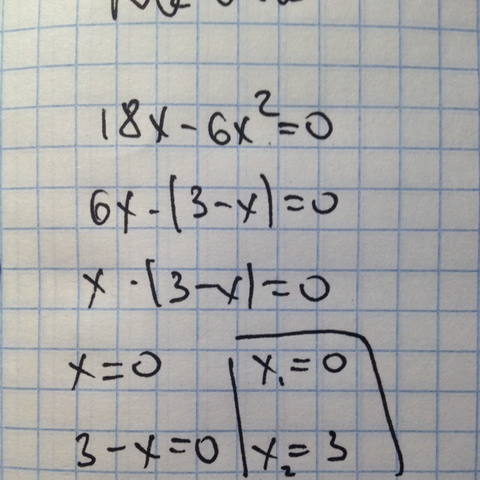 18x - 6x² = 0
6x · (3 - x) = 0
x · (3 - x) = 0
x = 0
3 - x = 0
x₁ = 0
x₂ = 3